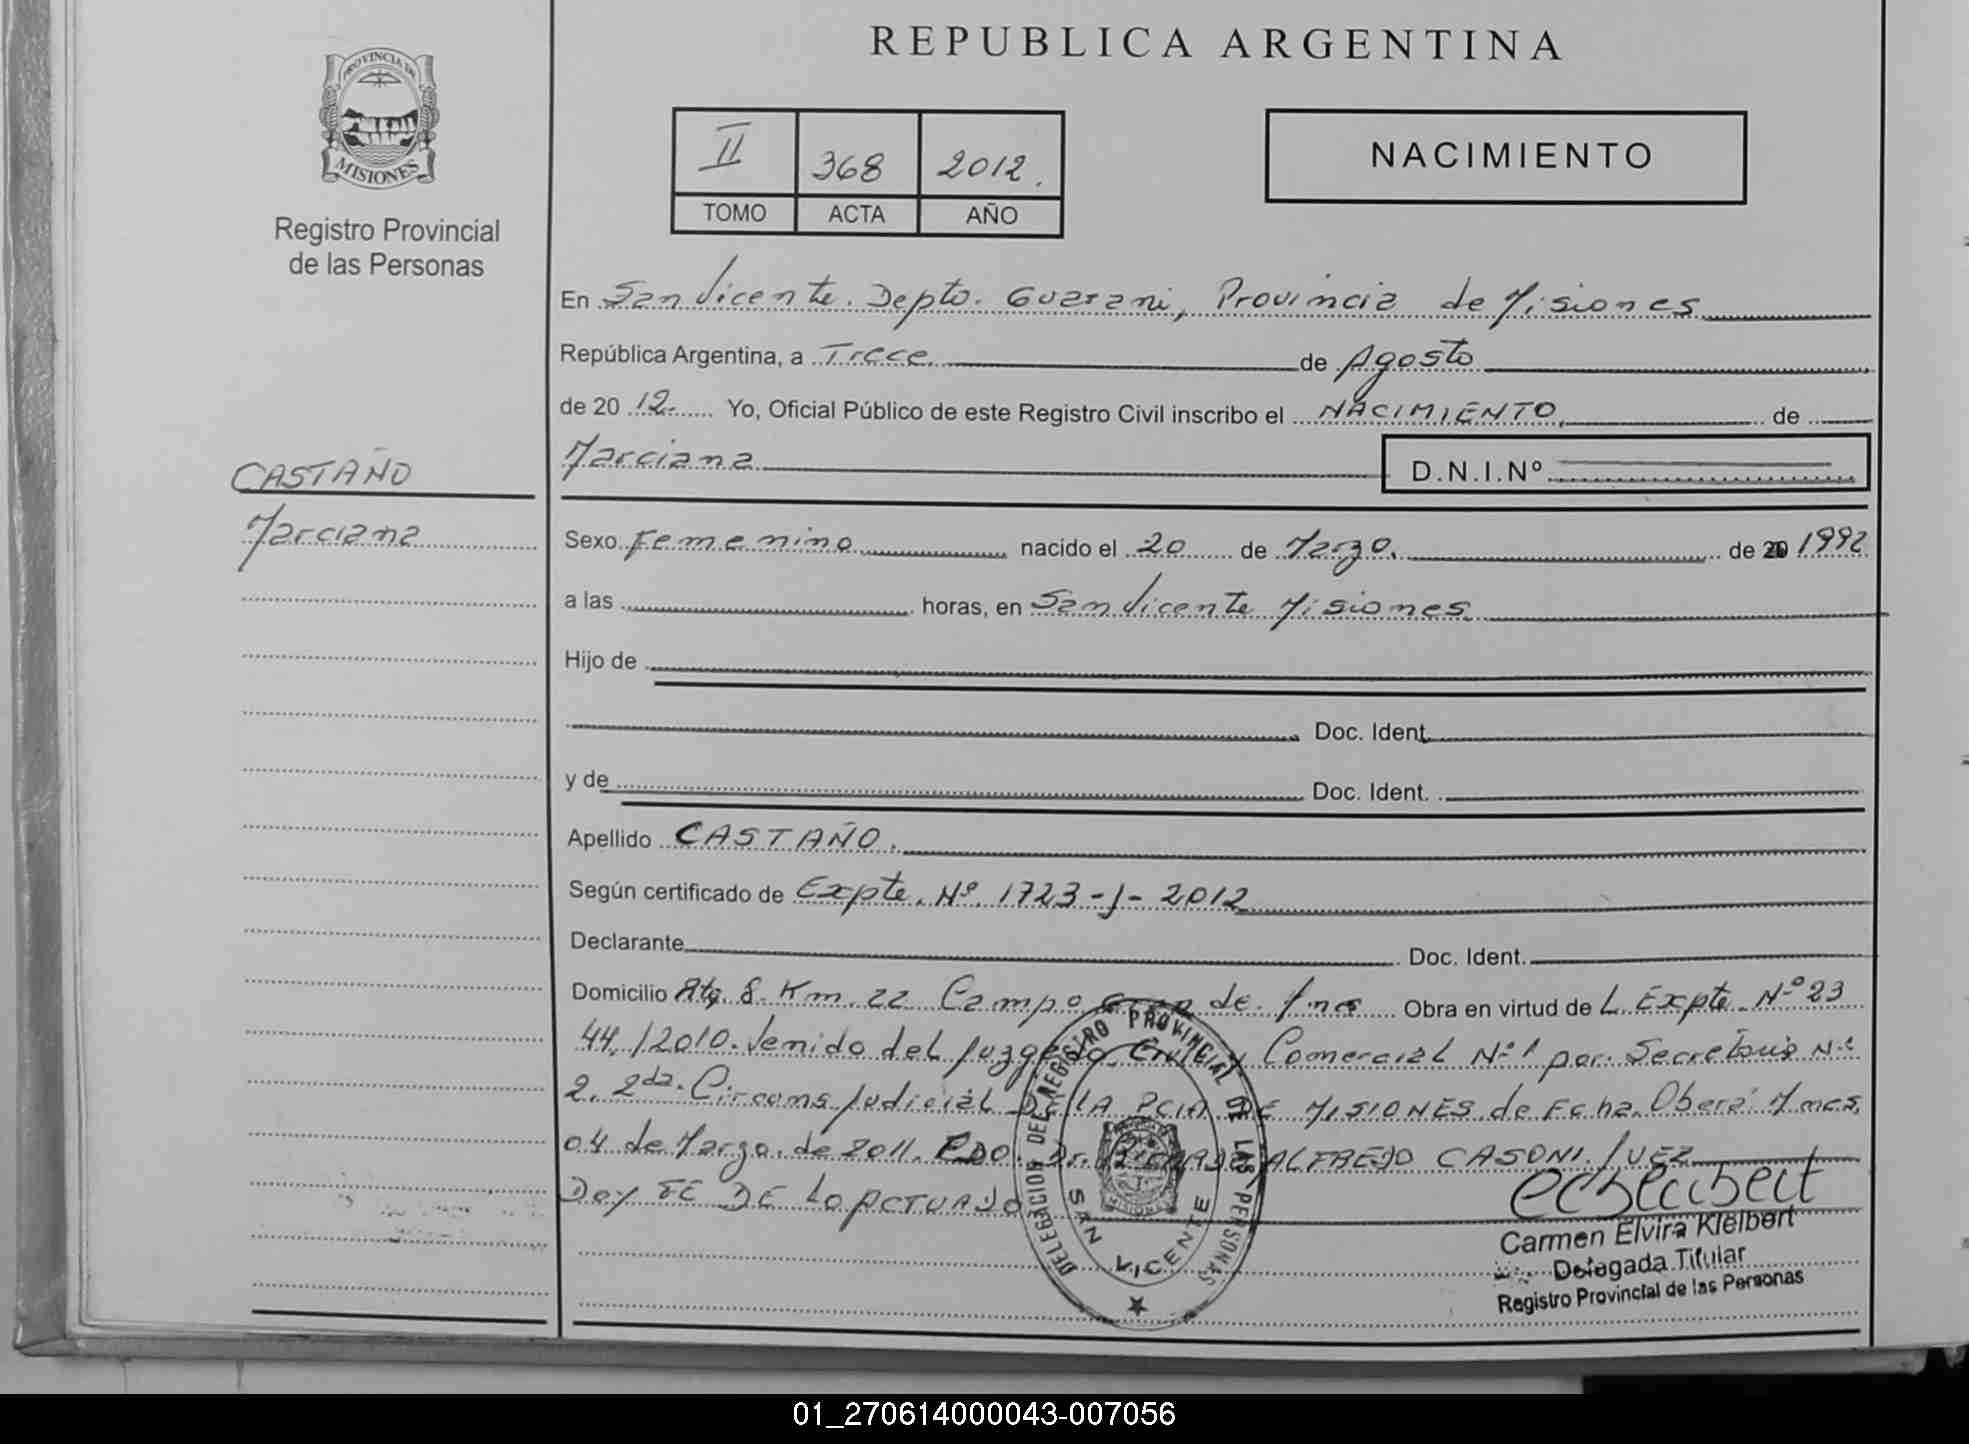 REPUBLICA ARGENTINA
PROVINCIA DE
MISIONES
Registro Provincial
de las Personas
II 368 2012.
TOMO ACTA AÑO
NACIMIENTO
En San Vicente. Depto. Guarani, Provincia de Misiones
República Argentina, a Trece de Agosto
de 20 12. Yo, Oficial Público de este Registro Civil inscribo el NACIMIENTO de
Marciana D.N.I.Nº
CASTAÑO
Marciana
Sexo Femenino nacido el 20 de Marzo. de 20 1992
a las horas, en San Vicente Misiones
Hijo de
Doc. Ident.
y de Doc. Ident.
Apellido CASTAÑO.
Según certificado de Expte. Nº 1723-J-2012
Declarante Doc. Ident.
Domicilio Rta. 8. Km. 22 Campo Grande. Mnes Obra en virtud de L Expte Nº 23
44./2010. Venido del Juzgado Civil y Comercial Nº 1 por. Secretaria Nº
2. 2da. Circuns Judicial DE LA PCIA DE MISIONES de Fcha. Oberá Mnes.
04 de Marzo. de 2011. FDO. Dr. ALFREDO CASONI. JUEZ
Doy FE DE LO ACTUADO
DELEGACION DEL REGISTRO PROVINCIAL DE LAS PERSONAS
SAN VICENTE
MISIONES
Carmen Elvira Kleibert
Delegada Titular
Registro Provincial de las Personas
01_270614000043-007056